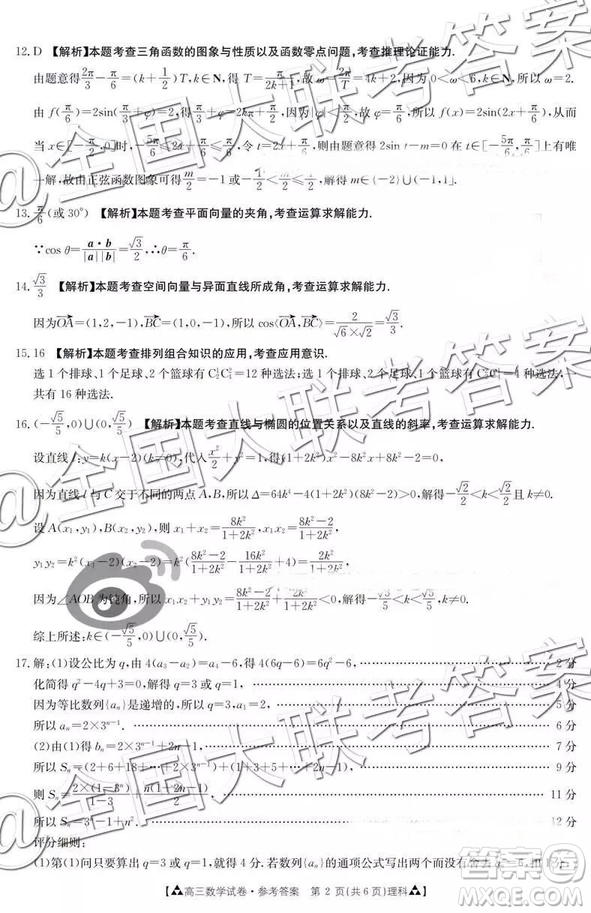 12. D 【解析】本题考查三角函数的图象与性质以及函数零点问题,考查推理论证能力.
由题意得2π/3−π/6=(k+1/2)T,k∈N,得T=π/(2k+1),k∈N,因为0<ω<6,所以ω=2.
由 f(π/6)=2sin(π/3+φ)=2,得
当x∈[−π/2,0]时,−5π/6≤2x+π/6≤π/6,令t=2x+π/6,则由题意得2sin t−m=0在t∈[−5π/6,π/6]上有
一解,故由正弦函数图象可得m/2=−1或−1/2<m/2≤1/2,解得m∈{−2}∪(−1,1].
13. π/6(或30°) 【解析】本题考查平面向量的夹角,考查运算求解能力.
∵cos θ=a·b/|a||b|=√3/2,∴θ=π/6.
14. √3/3 【解析】本题考查空间向量与异面直线所成角,考查运算求解能力.
因为OA=(1,2,−1),BC=(1,0,−1),所以cos⟨OA,BC⟩=2/(√6×√2)=√3/3.
15. 16 【解析】本题考查排列组合知识的应用,考查应用意识.
选1个排球、1个足球、2个篮球有 =12种选法;选1个排球、2个足球、1个篮球有 =4种选法,
共有16种选法.
16. (−√5/5,0)∪(0,√5/5) 【解析】本题考查直线与椭圆的位置关系以及直线的斜率,考查运算求解能力.
设直线l:y=k(x−2)(k≠0),代入x²/2+y²=1,得(1+2k²)x²−8k²x+8k²−2=0.
因为直线l与C交于不同的两点A,B,所以Δ=64k⁴−4(1+2k²)(8k²−2)>0,解得−√2/2<k<√2/2
设A(x₁,y₁),B(x₂,y₂),则x₁+x₂=8k²/(1+2k²),x₁x₂=(8k²−2)/(1+2k²),
y₁y₂=k²(x₁−2)(x₂−2)=k²((8k²−2)/(1+2k²)−16k²/(1+2k²)+4)=2k²/(1+2k²)
因为∠AOB为钝角,所以x₁x₂+y₁y₂=(8k²−2)/(1+2k²)+2k²/(1+2k²)
综上所述:k∈(−√5/5,0)∪(0,√5/5).
17. 解:(1)设公比为q,由4(a₃−a₂)=a₄−6,得4(
化简得q²−4q+3=0,解得q=3或q=1,
因为等比数列{aₙ}是递增的,所以q=3,a₁=2, 5分
所以aₙ=2×3ⁿ⁻¹. 6分
(2)由(1)得bₙ=2×3ⁿ⁻¹+2n−1, 7分
所以Sₙ=(2+6+18+…+2×3ⁿ⁻¹)+(1+3+5+…+2n−1), 9分
则Sₙ=2×(1−3ⁿ)/(1−3)+n(1+2n−1)/2, 11分
所以Sₙ=3ⁿ−1+n². 12分
评分细则:
(1)第(1)问只要算出q=3或q=1,就得4分.若数列{aₙ}的通项公式写成
高三数学试卷·参考答案 第2页(共6页)理科
@全国大联考答案
@全国大联考答案
@全国大联考答案